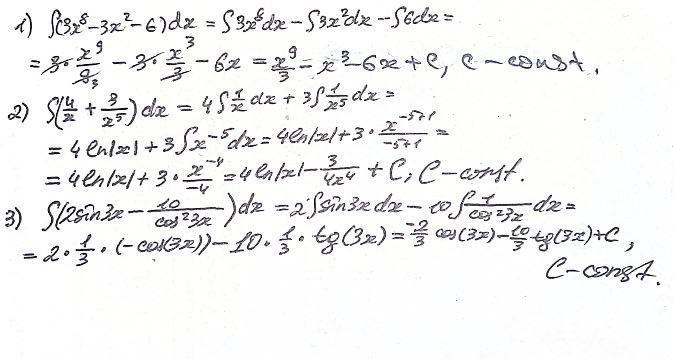 1) ∫(3x⁸-3x²-6)dx = ∫3x⁸dx - ∫3x²dx - ∫6dx =
= 3·x⁹/9₃ - 3·x³/3 - 6x = x⁹/3 - x³ - 6x + C, C - const.
2) ∫(4/x + 3/x⁵)dx = 4∫1/x dx + 3∫1/x⁵ dx =
= 4ln|x| + 3∫x⁻⁵dx = 4ln|x| + 3·x⁻⁵⁺¹/-5+1 =
= 4ln|x| + 3·x⁻⁴/-4 = 4ln|x| - 3/4x⁴ + C, C - const.
3) ∫(2sin3x - 10/cos²3x)dx = 2∫sin3xdx - 10∫1/cos²3x dx =
= 2·1/3·(-cos(3x)) - 10·1/3·tg(3x) = -2/3 cos(3x) - 10/3 tg(3x) + C,
C - const.